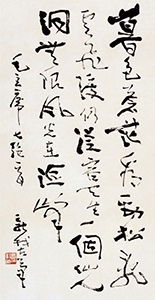 暮色苍茫看勁松乱
雲飛渡仍從容天生一個仙人
洞無限風光在險峰
毛主席七絶一首
新我左筆